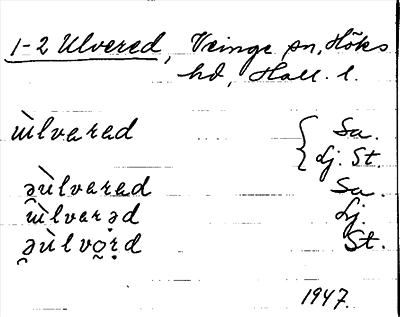 1-2 Ulvered, Veinge sn, Höks
hd, Hall. l.
ɯ̀lvarad { Sa.
Lj. St.
ə̯ùlvarad Sa.
ɯ̀lvarəd Lj.
ə̯ùlvo̰ṛd St.
1947.